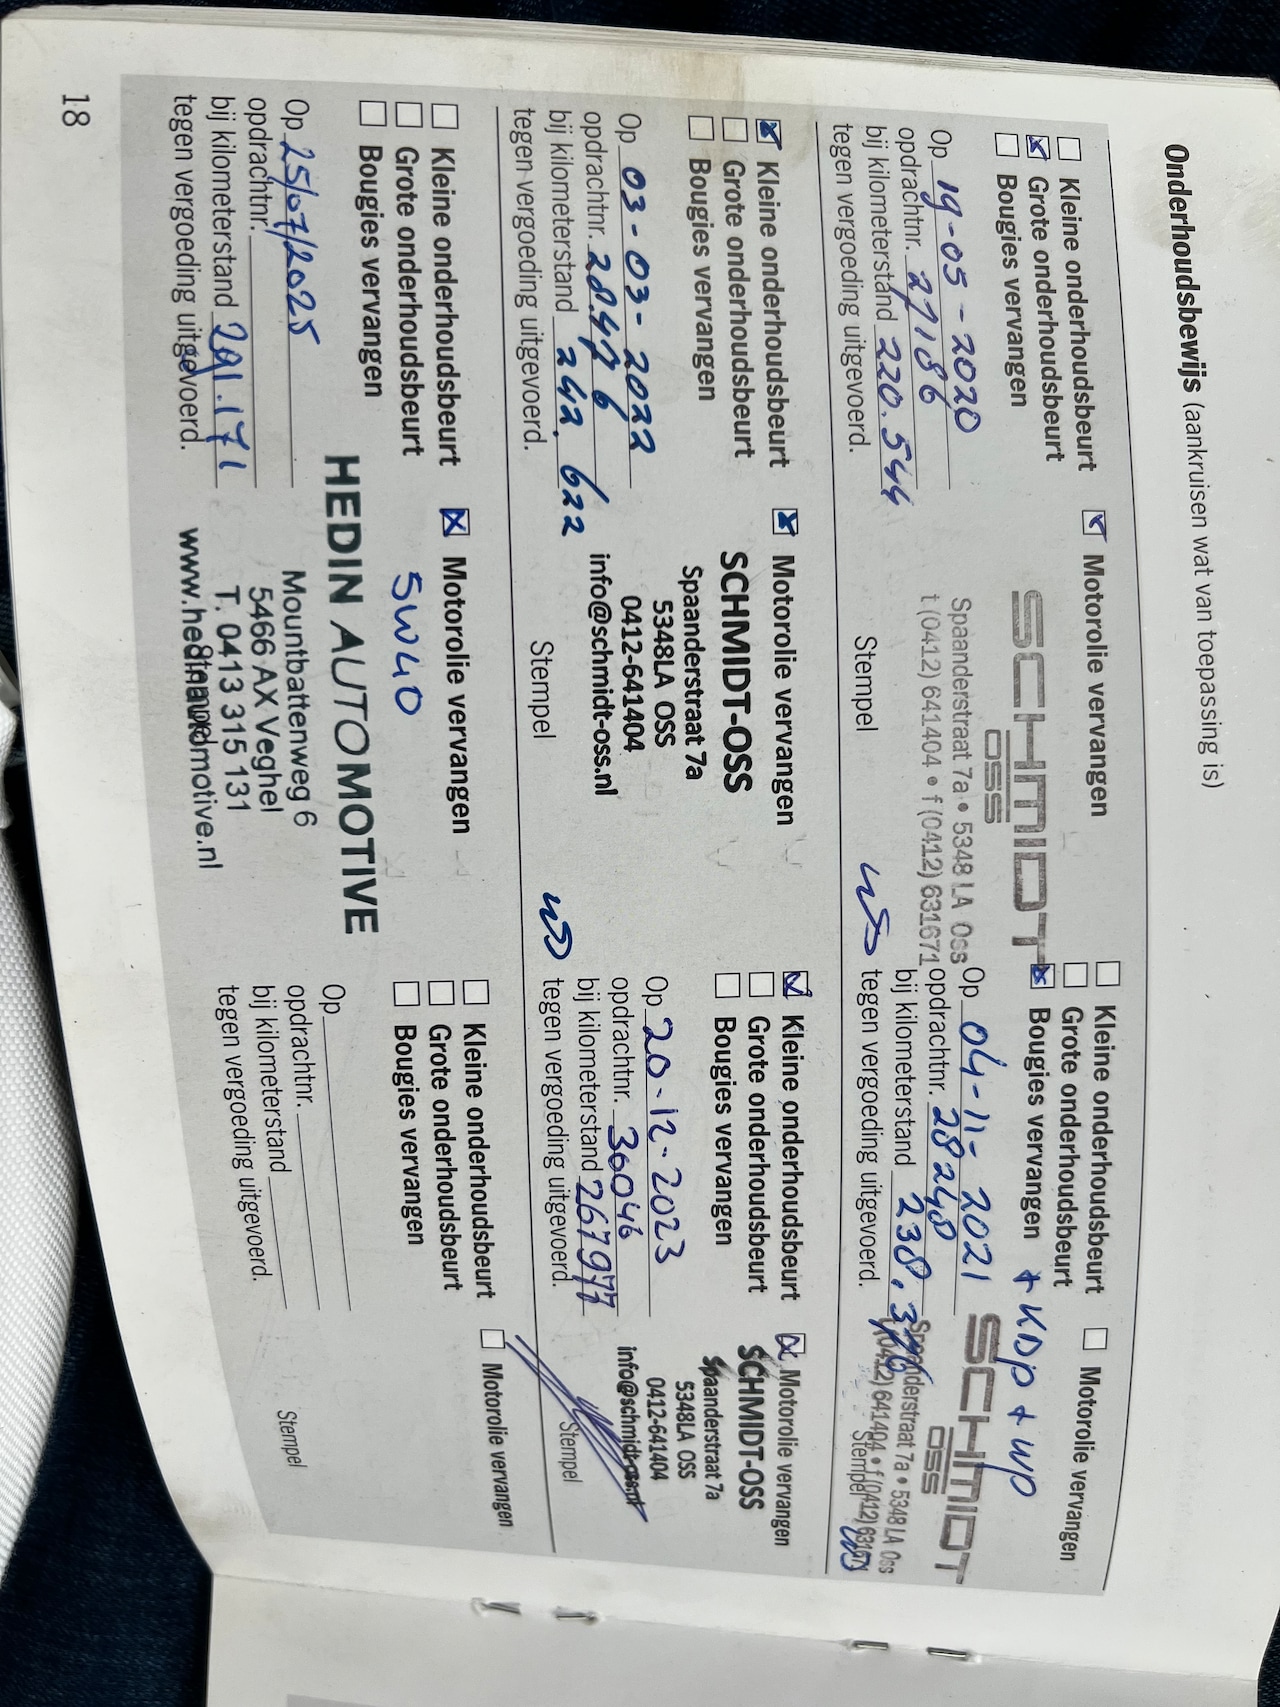 Onderhoudsbewijs (aankruisen wat van toepassing is)
Kleine onderhoudsbeurt
Motorolie vervangen
Grote onderhoudsbeurt
Bougies vervangen
SCHMIDT
OSS
Spaanderstraat 7a • 5348 LA Oss
t (0412) 641404 • f (0412) 631671
Op 19-05-2020
opdrachtnr. 27186
bij kilometerstand 220.544
tegen vergoeding uitgevoerd.
Stempel
Kleine onderhoudsbeurt
Motorolie vervangen
Grote onderhoudsbeurt
Bougies vervangen + KDP + WP
SCHMIDT
OSS
Spaanderstraat 7a • 5348 LA Oss
t (0412) 641404 • f (0412) 631671
Op 04-11-2021
opdrachtnr. 28248
bij kilometerstand 238.376
tegen vergoeding uitgevoerd.
Stempel
Kleine onderhoudsbeurt
Motorolie vervangen
Grote onderhoudsbeurt
Bougies vervangen
SCHMIDT-OSS
Spaanderstraat 7a
5348LA OSS
0412-641404
info@schmidt-oss.nl
Op 03-03-2022
opdrachtnr. 28.476
bij kilometerstand 242.622
tegen vergoeding uitgevoerd.
Stempel
Kleine onderhoudsbeurt
Motorolie vervangen
Grote onderhoudsbeurt
Bougies vervangen
SCHMIDT-OSS
Spaanderstraat 7a
5348LA OSS
0412-641404
info@schmidt-oss.nl
Op 20-12-2023
opdrachtnr. 30046
bij kilometerstand 267977
tegen vergoeding uitgevoerd.
Stempel
Kleine onderhoudsbeurt
Motorolie vervangen
Grote onderhoudsbeurt
5W40
Bougies vervangen
HEDIN AUTOMOTIVE
Mountbattenweg 6
5466 AX Veghel
T. 0413 315 131
www.hedinautomotive.nl
Op 25/07/2025
opdrachtnr.
bij kilometerstand 291.171
tegen vergoeding uitgevoerd.
Stempel
Kleine onderhoudsbeurt
Motorolie vervangen
Grote onderhoudsbeurt
Bougies vervangen
Op
opdrachtnr.
bij kilometerstand
tegen vergoeding uitgevoerd.
Stempel
18